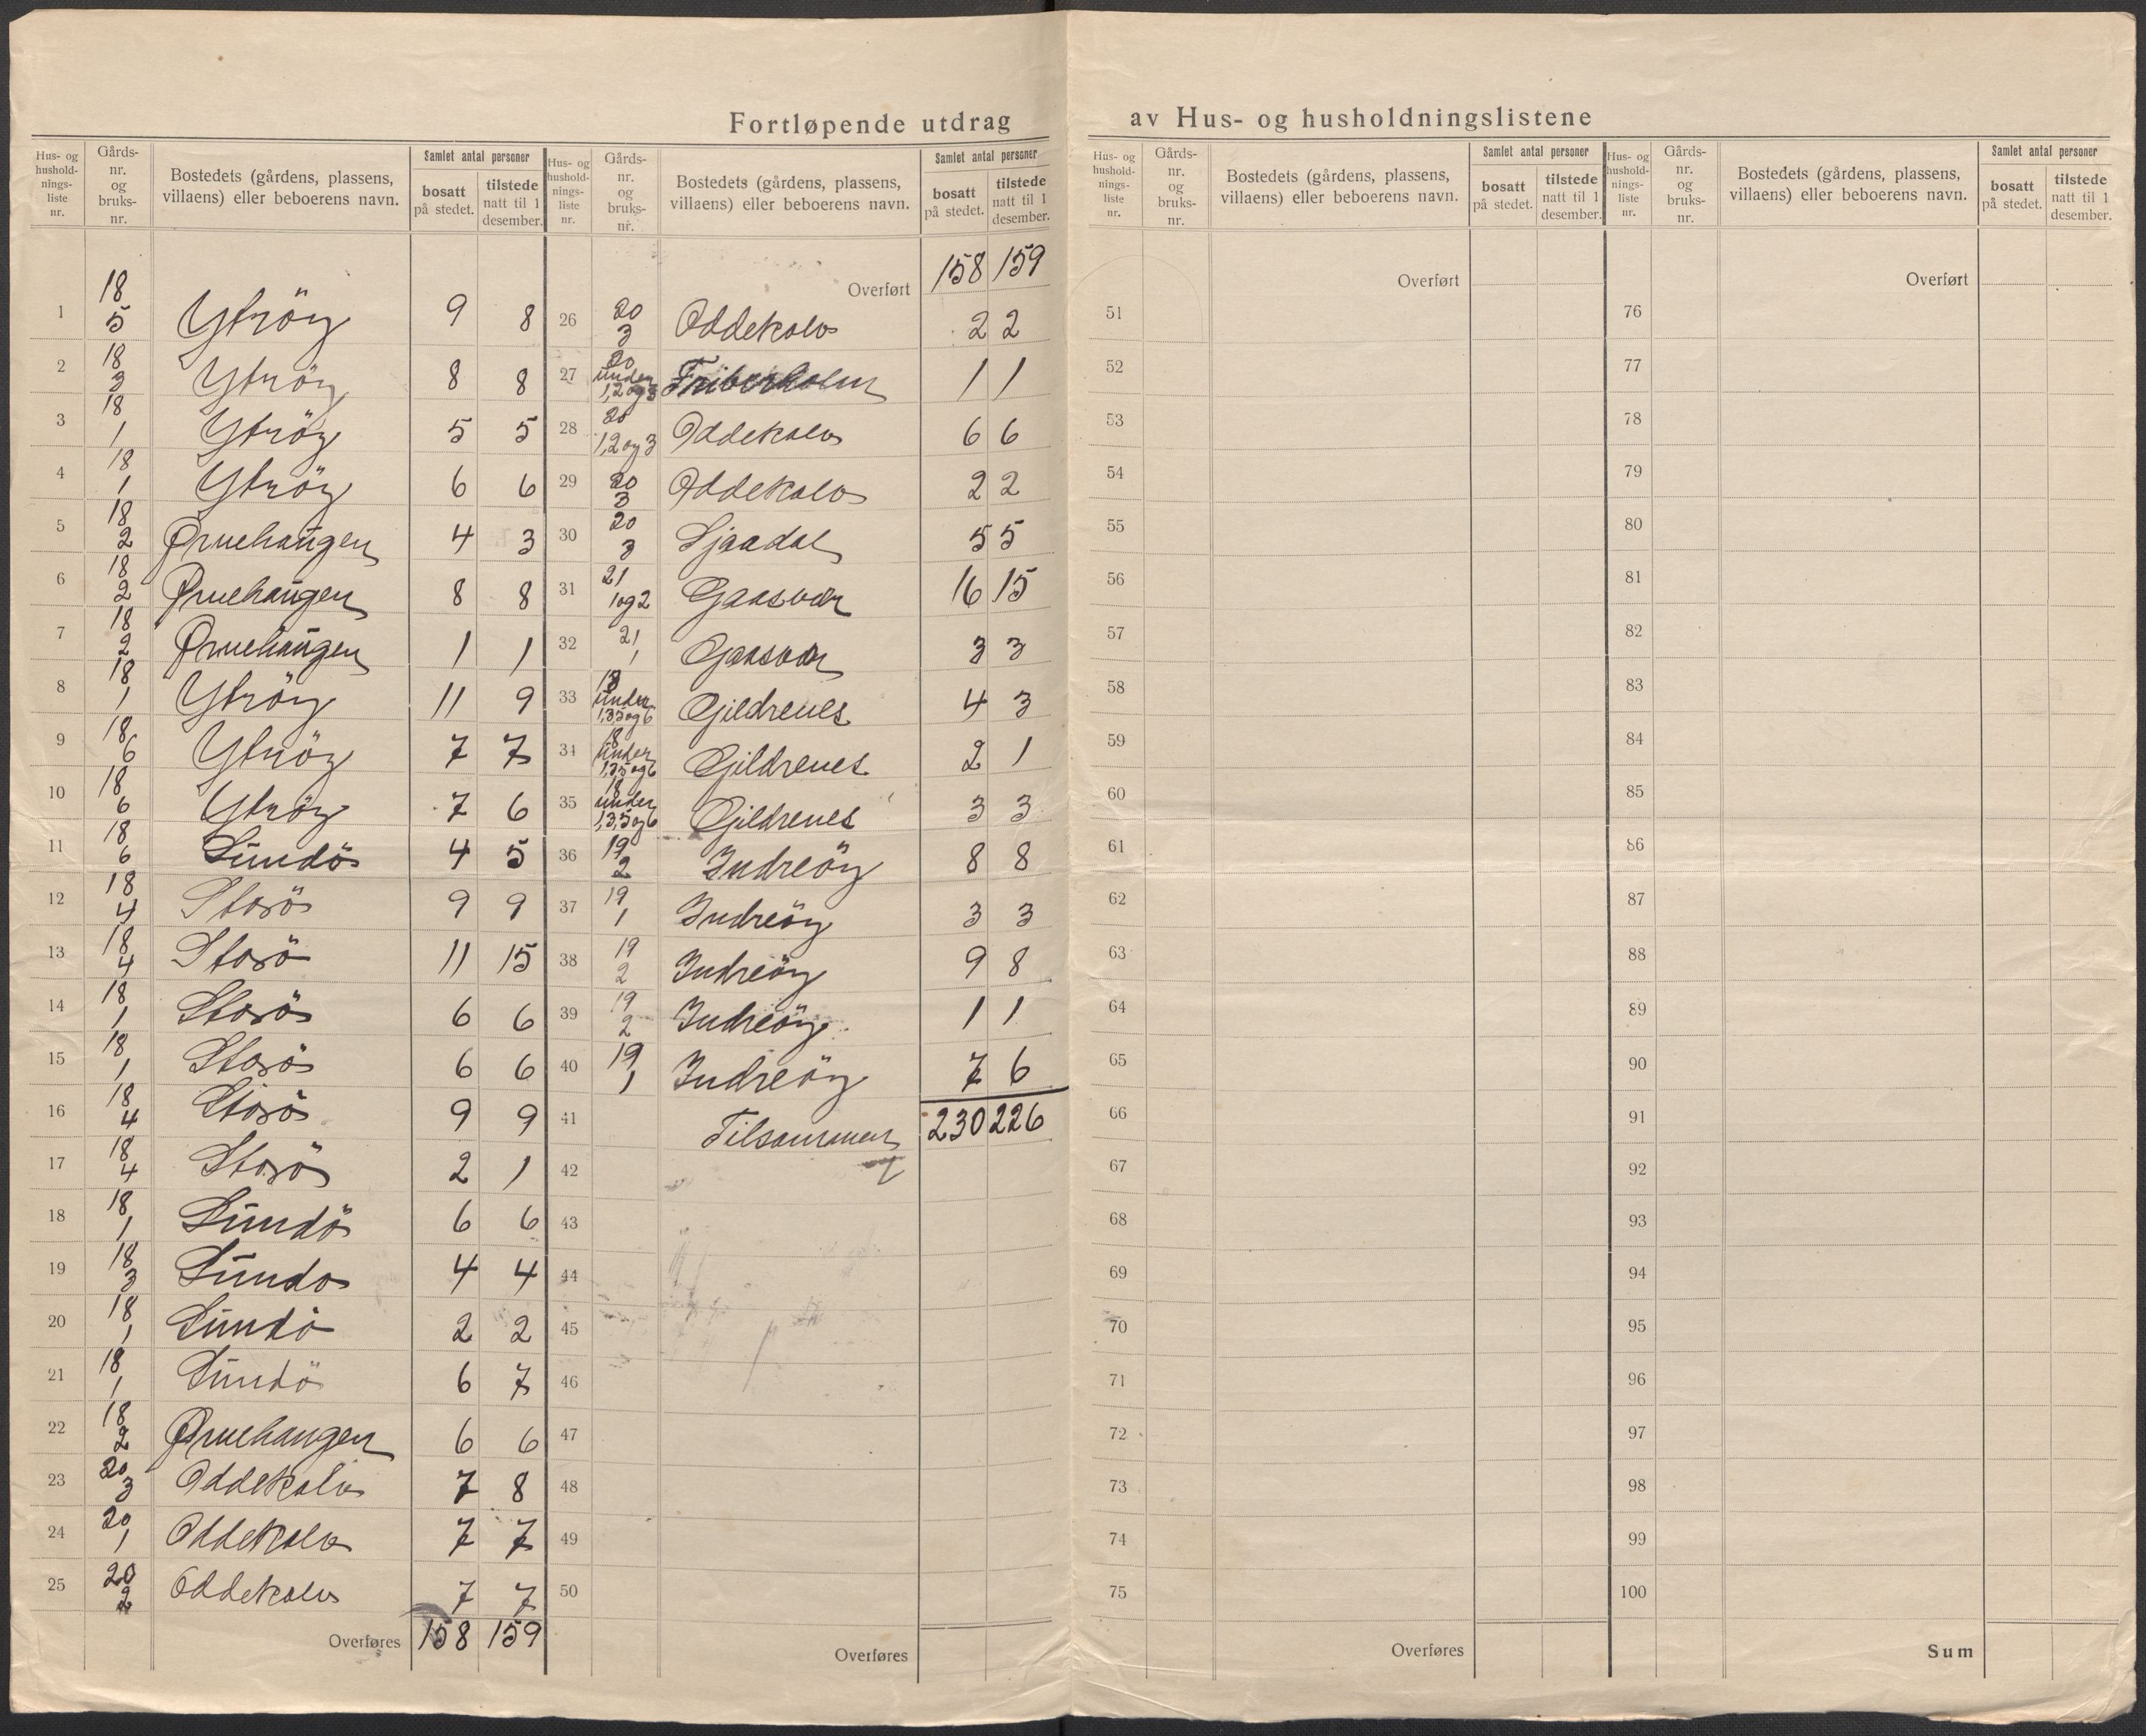 Fortløpende utdrag av Hus- og husholdningslistene
Hus- og husholdnings-liste nr. Gårds-nr. og bruks-nr. Bostedets (gårdens, plassens, villaens) eller beboerens navn. Samlet antal personer bosatt på stedet. tilstede natt til 1 desember.
1 18 5 Ytröy 9 8
2 18 3 Ytröy 8 8
3 18 1 Ytröy 5 5
4 18 1 Ytröy 6 6
5 18 2 Ørnehaugen 4 3
6 18 2 Ørnehaugen 8 8
7 18 2 Ørnehaugen 1 1
8 18 1 Ytröy 11 9
9 18 6 Ytröy 7 7
10 18 6 Ytröy 7 6
11 18 6 Sundö 4 5
12 18 4 Storö 9 9
13 18 4 Storö 11 15
14 18 1 Storö 6 6
15 18 1 Storö 6 6
16 18 4 Storö 9 9
17 18 4 Storö 2 1
18 18 1 Sundö 6 6
19 18 3 Sundo 4 4
20 18 1 Sundö 2 2
21 18 1 Sundö 6 7
22 18 2 Ørnehaugen 6 6
23 20 3 Oddekalv 7 8
24 20 1 Oddekalv 7 7
25 20 2 Oddekalv 7 7
Overføres 158 159
Hus- og husholdnings-liste nr. Gårds-nr. og bruks-nr. Bostedets (gårdens, plassens, villaens) eller beboerens navn. Samlet antal personer bosatt på stedet. tilstede natt til 1 desember.
Overført 158 159
26 20 3 Oddekalv 2 2
27 20 under 1,2 og 3 Friberholm 1 1
28 20 1,2 og 3 Oddekalv 6 6
29 20 3 Oddekalv 2 2
30 20 3 Sjaadal 5 5
31 21 1 og 2 Gaasvær 16 15
32 21 1 Gaasvær 3 3
33 18 under 1,3,5 og 6 Gildrenes 4 3
34 18 under 1,3,5 og 6 Gildrenes 2 1
35 18 under 1,3,5 og 6 Gildrenes 3 3
36 19 2 Indreöy 8 8
37 19 1 Indreöy 3 3
38 19 2 Indreöy 9 8
39 19 2 Indreöy 1 1
40 19 1 Indreöy 7 6
41 Tilsammen 230 226
42
43
44
45
46
47
48
49
50
Overføres
Hus- og husholdnings-liste nr. Gårds-nr. og bruks-nr. Bostedets (gårdens, plassens, villaens) eller beboerens navn. Samlet antal personer bosatt på stedet. tilstede natt til 1 desember.
Overført
51
52
53
54
55
56
57
58
59
60
61
62
63
64
65
66
67
68
69
70
71
72
73
74
75
Overføres
Hus- og husholdnings-liste nr. Gårds-nr. og bruks-nr. Bostedets (gårdens, plassens, villaens) eller beboerens navn. Samlet antal personer bosatt på stedet. tilstede natt til 1 desember.
Overført
76
77
78
79
80
81
82
83
84
85
86
87
88
89
90
91
92
93
94
95
96
97
98
99
100
Sum